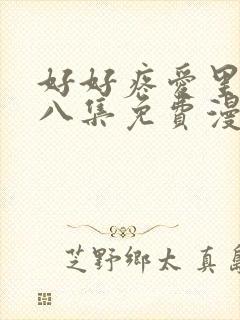 好好疼爱里
八集免費漫
芝野鄉太 真島